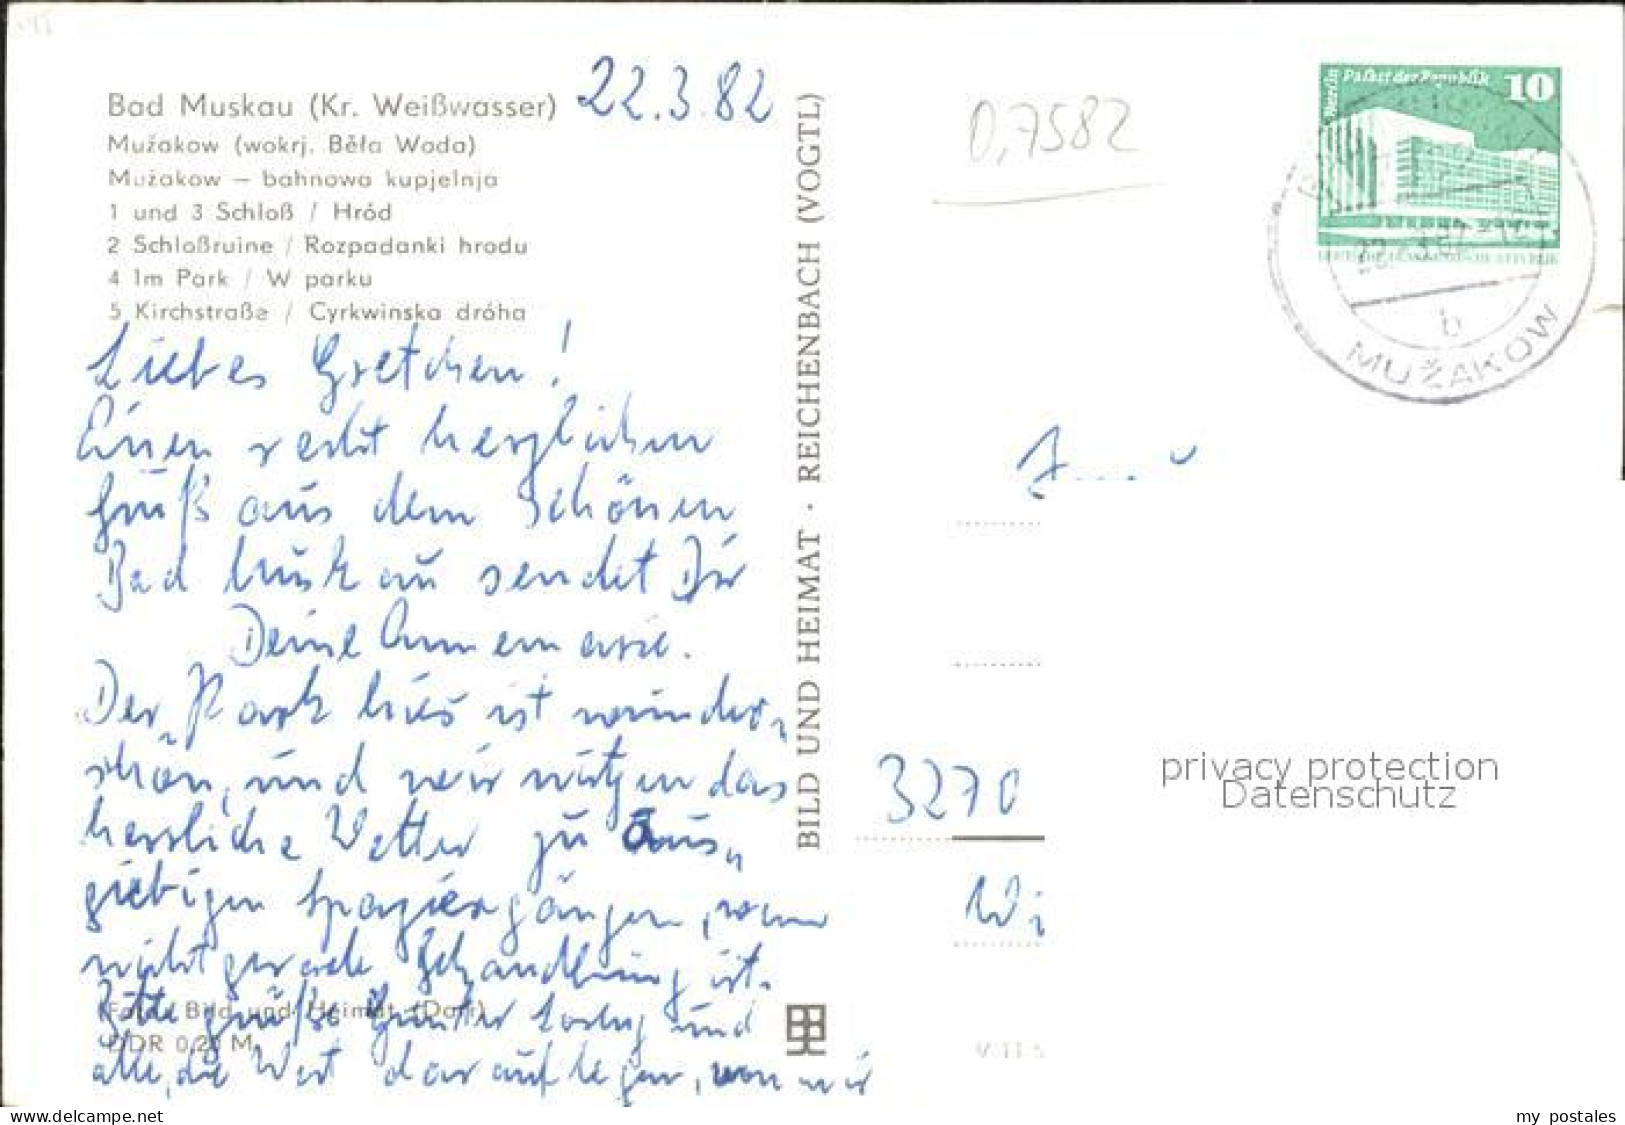 22.3.82
Bad Muskau (Kr. Weißwasser)
Mužakow (wokrj. Běła Woda)
Mužakow – bahnowa kupjelnja
1 und 3 Schloß / Hród
2 Schloßruine / Rozpadanki hrodu
4 Im Park / W parku
5 Kirchstraße / Cyrkwinska dróha
Liebes Gretchen!
Einen recht herzlichen
Gruß aus dem schönen
Bad Muskau sendet Dir
Deine Annemarie.
Der Park hier ist wunder-
schön, und wir nutzen das
herrliche Wetter zu aus-
giebigen Spaziergängen, wenn
nicht gerade Behandlung ist.
Bitte grüße Günter und
alle, die Wert darauf legen, von mir
(Foto: Bild und Heimat (Dorr)
DDR 0,20 M
BILD UND HEIMAT · REICHENBACH (VOGTL)
0,7582
Berlin Palast der Republik 10
DEUTSCHE DEMOKRATISCHE REPUBLIK
22.-3.82
b
MUŽAKOW
3270
Wi
privacy protection
Datenschutz
www.delcampe.net
my_postales